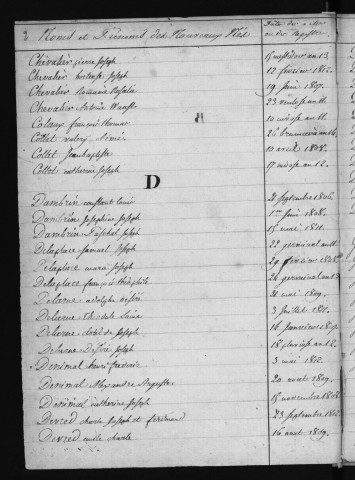 2 Noms et Prénoms des Nouveaux Nés
Date des actes ou du Registre
Chevalier pierre Joseph 15 messidor an 13.
Chevalier hortense Joseph 12 février 1812.
Chevalier Romaine Rosalie 19 1807.
Chevalier 23 ventose an 11.
Colaux françois thomas 10 nivose an 11.
Collet valery Aimée 26
Collet Jean baptiste 10 avril 1808.
Collet catherine Joseph 17 nivose an 12.
D
Dambrin constant Louis 21 septembre 1806.
Dambrin Josephine Joseph 1er juin 1808.
Dambrin Paschal Joseph 15 mai 1811.
Delaplace Samuel Joseph 22 germinal an 11.
Delaplace marie Joseph 29 février 1808.
Delaplace françois théophile 26 germinal an 13
Delarne adolphe desiré 21 mai 1809.
Delarne Louise 3 Juillet 1811.
Delarne Joseph 16 Janvier 1809.
Delarne Desiré Joseph 18 pluviose an 12.
Denimal henri frederic 3 mai 1812.
Denimal Alexandre Auguste 20 aout 1809.
Denimal catherine Joseph 15 novembre 1808.
Devred charles Joseph et ferdinand 23 septembre 1812.
Devred emile charle 16 aout 1809.